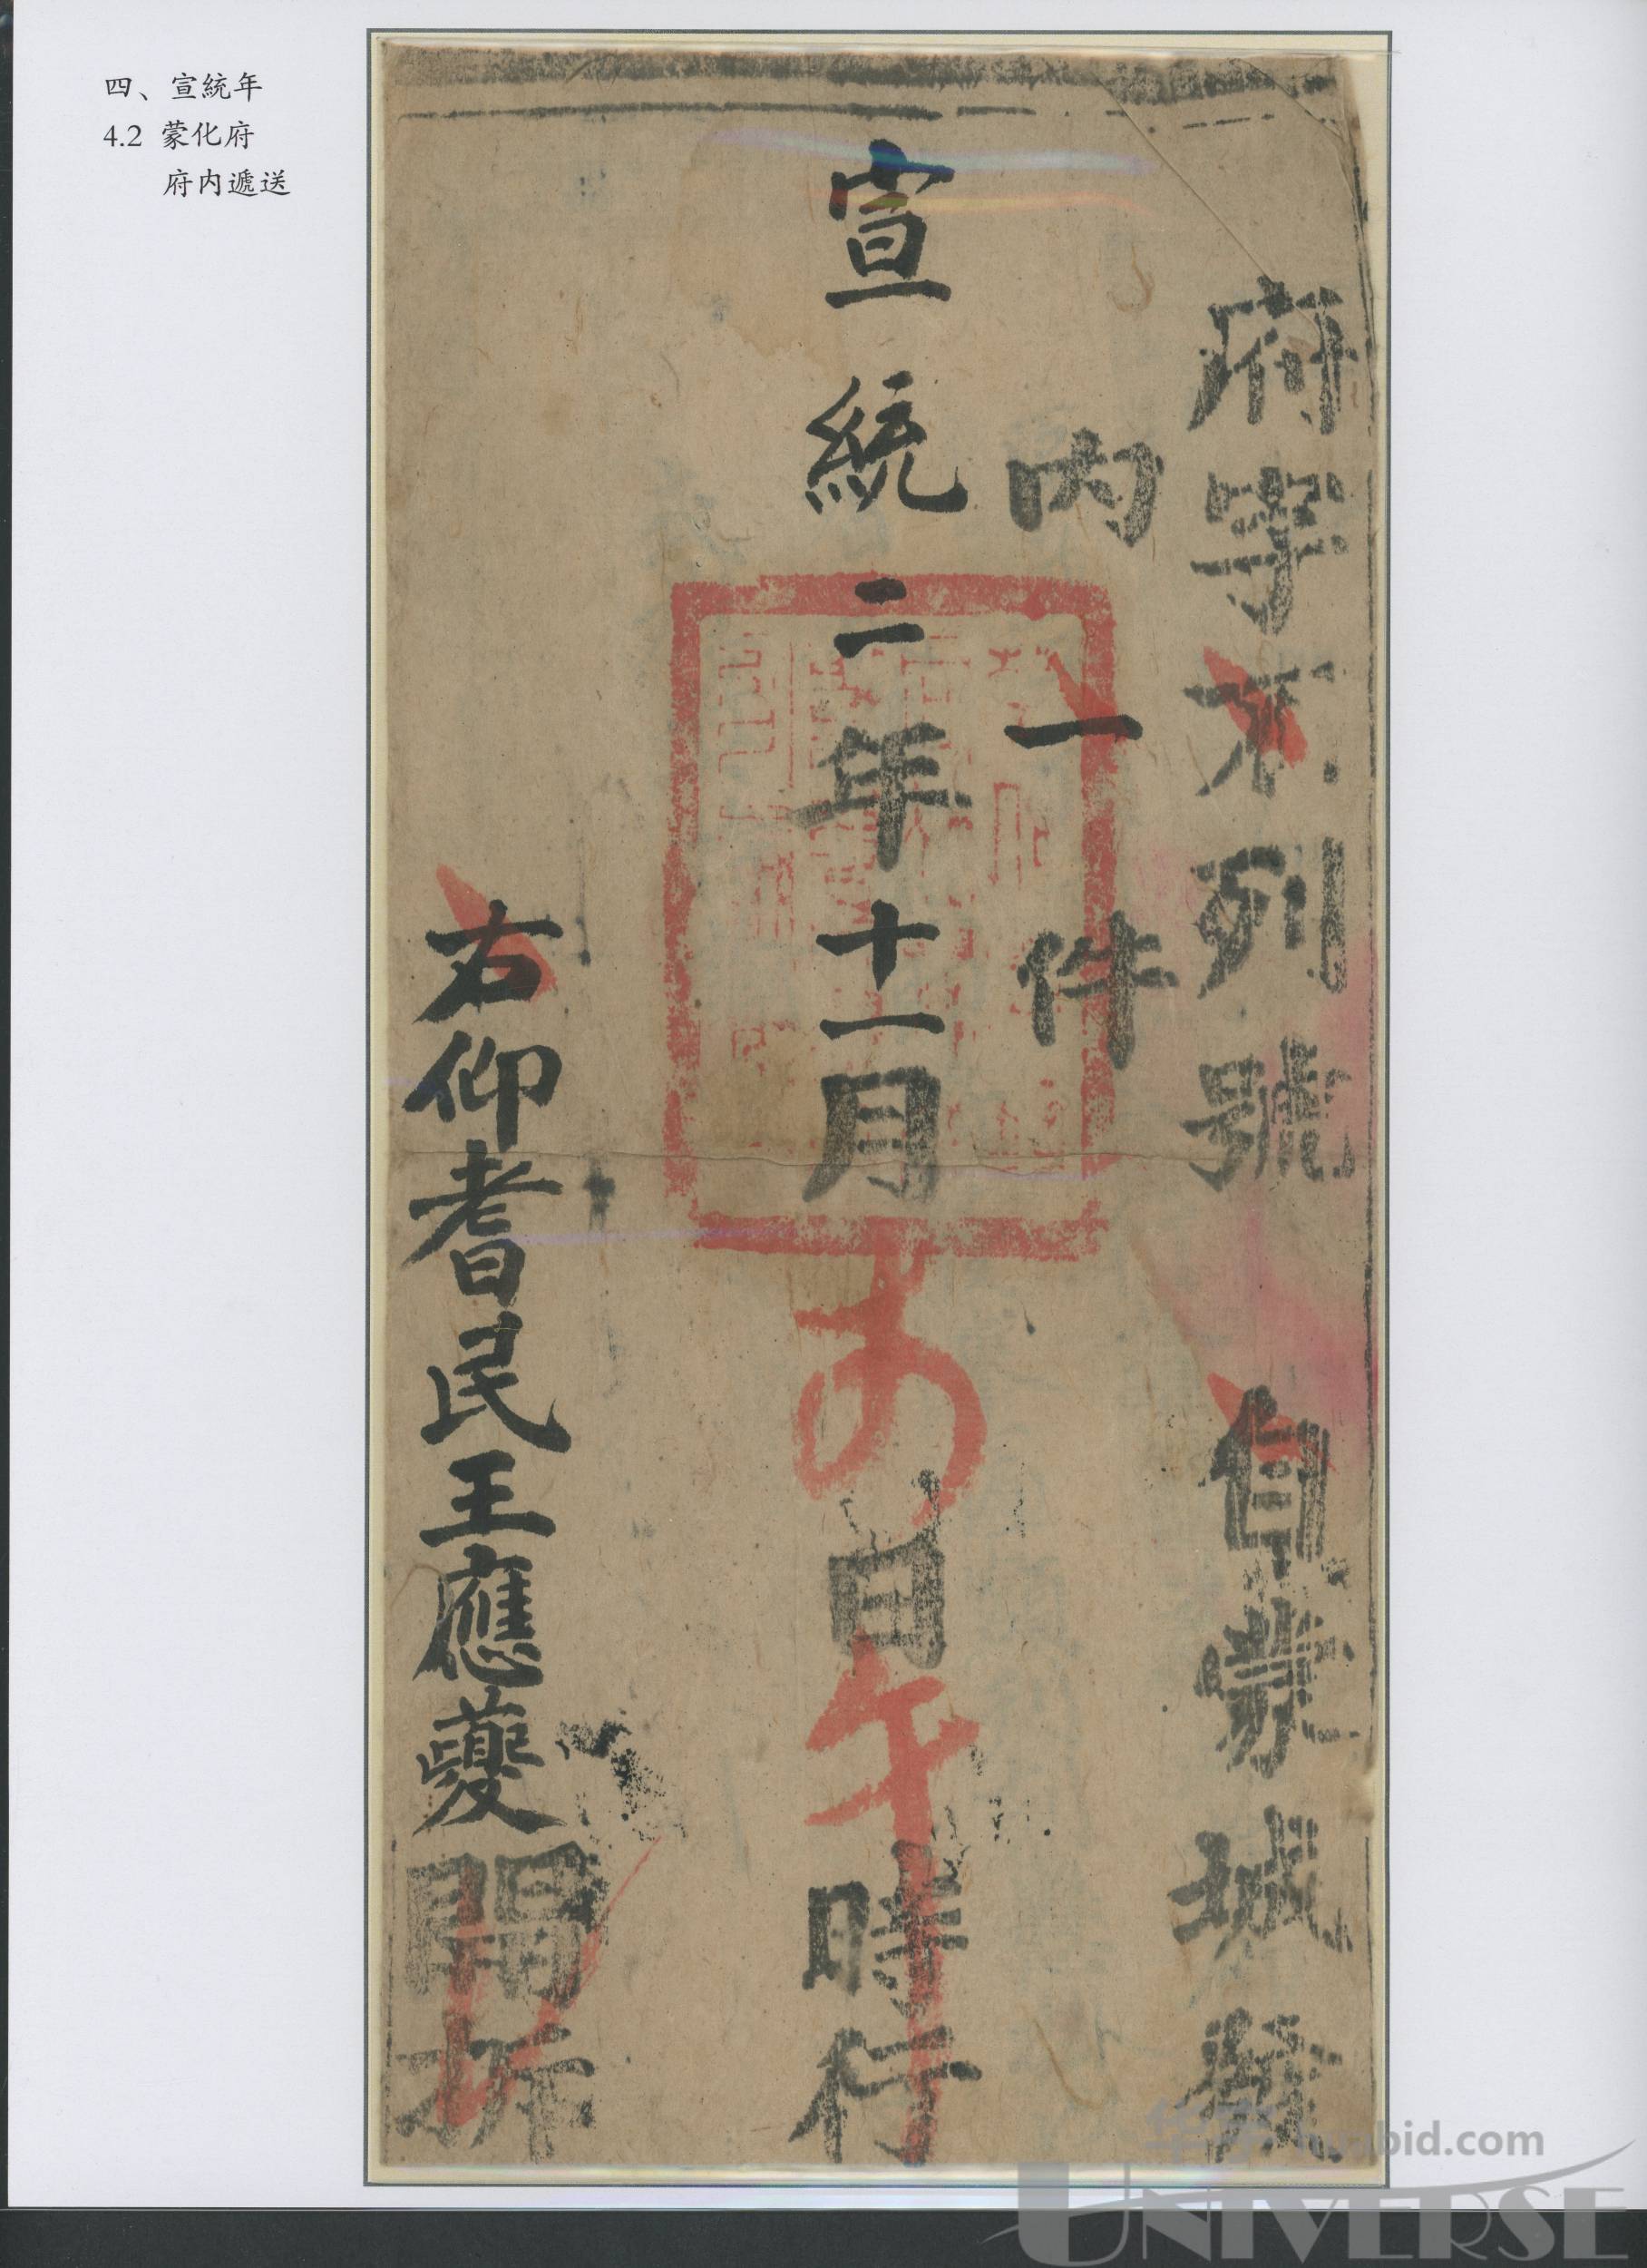 四、宣統年
4.2 蒙化府
府内遞送
府字不列號 自蒙城發
内一件
宣統二年十一月初日午時行
右仰耆民王應夔開拆
华宇 huabid.com
UNIVERSE